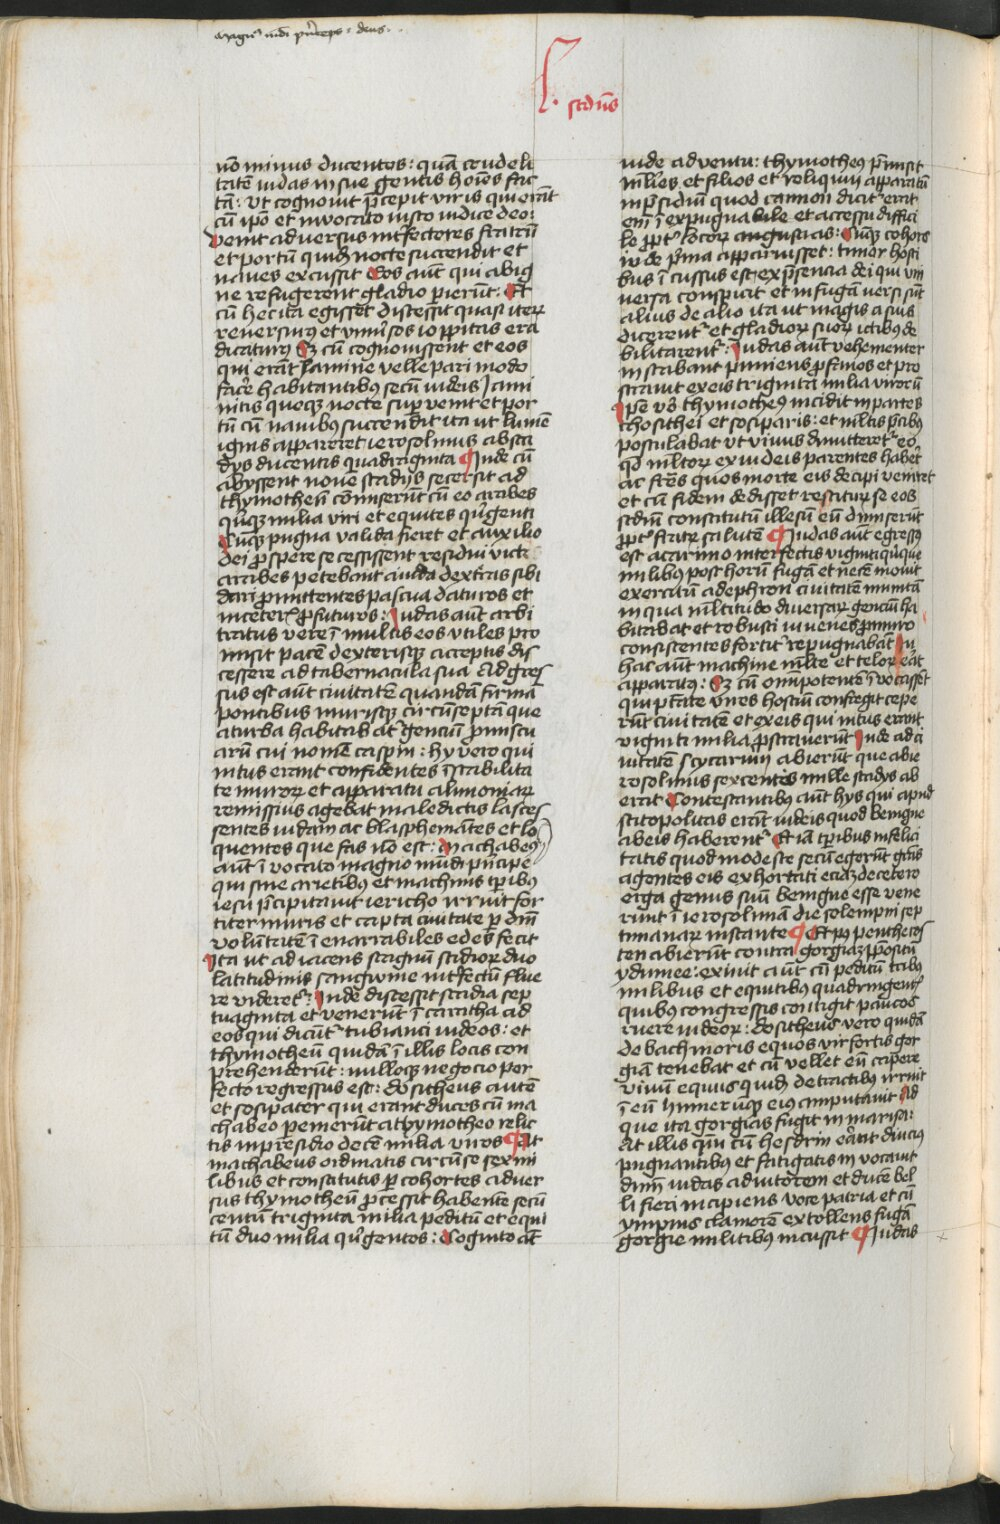 magn9 mdi p'nceps : deus.
L. scdus
no minus ducentos : quā crudeli
tatē iudas in sue gentis hoīes fac
tā : ut cognouit p̄cepit viris qui erāt
cū ipo et inuocato iusto iudice deo :
venit aduersus int'fectores fratrū
et portū quidē nocte succendit et
naues excussit Eos aūt qui ab ig
ne refugerent gladio perierūt : Et
cū hec ita egisset discessit quasi iterū
reuersurus et uniuersos ioppitas era
dicaturꝰ Sz cū cognouissent et eos
qui erāt Iamnie velle pari modo
facere habitantibꝰ secū iudeis Iamni
nitis quoqꝫ nocte supervenit et por
tū cū nauibus succendit ita ut lumē
ignis appareret ierosolimis ab sta
dijs ducentis quadraginta ¶ Inde cū
abyssent noue stadijs secersit ad
thymotheū cōmiserūt cū eo arabes
quīqꝫ milia viri et equites quīgenti
Cūqꝫ pugna valida fieret et auxilio
dei prospere se cessissent residui victi
arabes petebant a iuda dextras sibi
dari promittentes pascua daturos et
in ceter' profuturos : Iudas aūt arbi
tratus vere ī multis eos utiles pro
misit pacē dexterisqꝫ acceptis dis
cessere ad tabernacula sua Adgres
sus est aūt ciuitatē quandā firmā
pontibus murisqꝫ circūseptā que
a turba habitabat' gentiū promiscu
arū cui nomē caspin : hy vero qui
intus erant confidentes ī stabilita
te muroꝝ et apparatu alimoniaꝝ
remissius agebāt maledictis lasces
sentes iudam ac blasphemātes et lo
quentes que fas nō est : Machabeꝰ
aūt ī vocato magno mūdi p'ncipe
qui sine arietibꝰ et machinis tpribꝰ
iesu p'cipitauit iericho irruit for
titer muris et capta ciuitate per dnī
volūtatē ī enarrabiles edes fecit
Ita ut adiacens stagnū stadioꝝ duo
latitudinis sanguine int'fectū flue
re videret' : Inde discessit stadia sep
tuaginta et venerūt ī caratha ad
eos qui dicūt' tubianei iudeos : et
thymotheū quidā ī illis locis con
prehenderūt : nulloqꝫ negocio per
fecto regressus est : dositheus autē
et sosipater qui erant duces cū ma
chabeo peremerūt a thymotheo relic
tis in presidio decē milia viros ¶ At
machabeus ordinatis circū se sex mi
libus et constitutis per cohortes aduer
sus thymotheū processit habentē secū
centū triginta milia peditū et equi
tū duo milia quīgentos : Cognito aūt
iude aduentu : thymotheꝰ p'misit
mulies et filios et reliquū apparatū
in p'sidiū quod carnion dicit' erat
enī ī expugnabile et accessu diffici
le ppt' locoꝝ angustias : Cūqꝫ cohors
iude prima apparuisset : timor hosti
bus ī cussus est ex p'sencia dei qui uni
uersa conspicit et in fugā uersi sūt
alius de alio ita ut magis a suis
dicerent' et gladioꝝ suoꝝ ictibꝰ de
bilitarent' : Iudas aūt vehementer
instabant puniens prophanos et pro
strauit ex eis triginta milia viroꝝ
Ipse vō thymotheꝰ incidit in partes
dhosithei et sosiparis : et multis precibꝰ
postulabat ut viuus dimitteret' eo
qd multoꝝ ex iudeis parentes habet
ac fres quos morte eis decipi veniret
et cū fidem dedisset restituꝝ se eos
scdm constitutū illesū eū dimiserūt
ppt' fratrꝝ salutē ¶ Iudas aūt egressꝰ
est a carnio interfectis viginti quīque
milibꝰ post horū fugā et necē mouit
exercitū ad ephron ciuitatē munitā
in qua multitudo diuersaꝝ genciū ha
bitabat et robusti iuuenes pro muro
consistentes fortit' repugnabāt In
hac aūt machine multe et teloꝝ erat
apparatꝰ : Sz cū omnipotentē ī vocasset
qui ptate vires hostiū confregit cepe
rūt ciuitatē et ex eis qui intus erant
viginti milia prostrauerūt Inde ad ci
uitatē scytarum abierūt que a bie
rosolimis sexcentos mille stadys ab
erat Contestantibꝰ aūt hys qui apud
scitopolitas erāt iudeis quod benigne
ab eis haberent' Et iā tpribus infelici
tatis quod modeste secū egerūt grās
agentes eis exhortati eciā decetero
erga genus suū benigne esse vene
runt ī ierosolimā die solempni sep
timanaꝝ instante ¶ Et pꝰ penthecos
ten abierūt contra gorgiaz ppositū
ydumee : exiuit aūt cū peditū tribꝰ
milibus et equitibus quadringent'
quibꝰ congressis contigit paucos
ruere iudeoꝝ : dositheus vero quidā
de bachinoris equos vir fortis gor
giā tenebat et cū vellet eū capere
viuū equus quidē de tractibꝰ irruit
ī eū humerūqꝫ eiꝰ amputauit Ad
que ita gorgias fugit in marisa :
At illis qui cū hesdrin erāt diucius
pugnantibꝰ et fatigatis in vocauit
dnm iudas adiutorem et ducē bel
li fieri incipiens voce patria et cū
ympnis clamorē extollens fugā
gorgie militibꝰ incussit ¶ Iudas